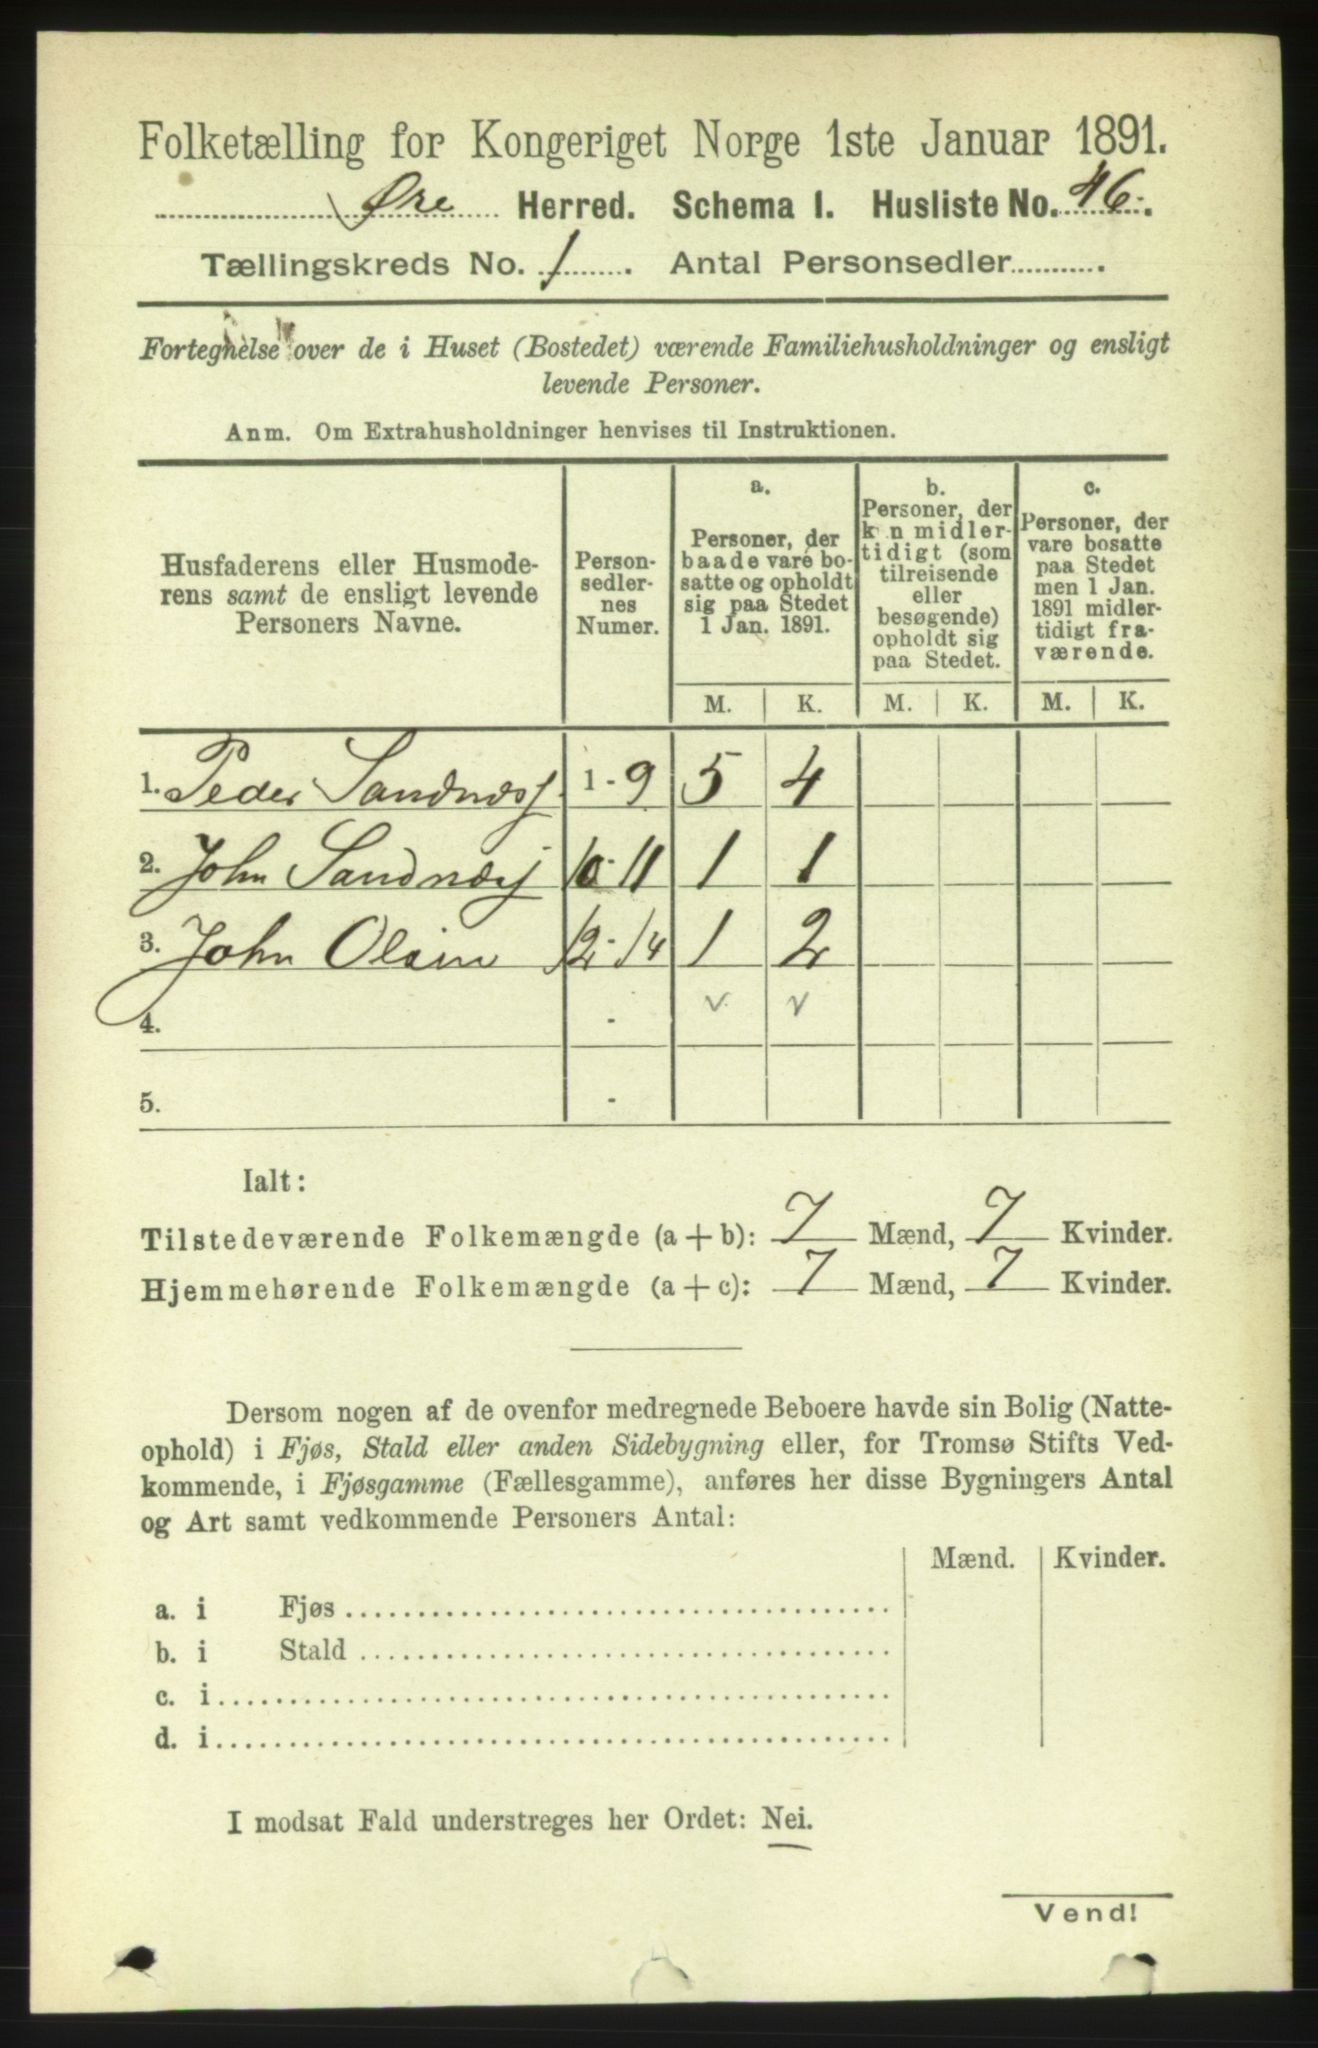 Folketælling for Kongeriget Norge 1ste Januar 1891.
Øre Herred. Schema 1. Husliste No. 46.
Tællingskreds No. 1. Antal Personsedler............
Fortegnelse over de i Huset (Bostedet) værende Familiehusholdninger og ensligt
levende Personer.
Anm. Om Extrahusholdninger henvises til Instruktionen.
Husfaderens eller Husmode-
rens samt de ensligt levende
Personers Navne.
Person-
sedler-
nes
Numer.
a.
Personer, der
baade vare bo-
satte og opholdt
sig paa Stedet
1 Jan. 1891.
b.
Personer, der
kun midler-
tidigt (som
tilreisende
eller
besøgende)
opholdt sig
paa Stedet.
c.
Personer, der
vare bosatte
paa Stedet
men 1 Jan.
1891 midler-
tidigt fra-
værende.
M. K. M. K. M. K.
1. Peder Sandnæs 1-9 5 4
2. John Sandnæs 10-11 1 1
3. John Olsen 12-14 1 2
4. - v v
5. -
Ialt:
Tilstedeværende Folkemængde (a + b): 7 Mænd, 7 Kvinder.
Hjemmehørende Folkemængde (a + c): 7 Mænd, 7 Kvinder.
Dersom nogen af de ovenfor medregnede Beboere havde sin Bolig (Natte-
ophold) i Fjøs, Stald eller anden Sidebygning eller, for Tromsø Stifts Ved-
kommende, i Fjøsgamme (Fællesgamme), anføres her disse Bygningers Antal
og Art samt vedkommende Personers Antal:
Mænd. Kvinder.
a. i Fjøs
b. i Stald
c. i
d. i
I modsat Fald understreges her Ordet: Nei.
Vend!